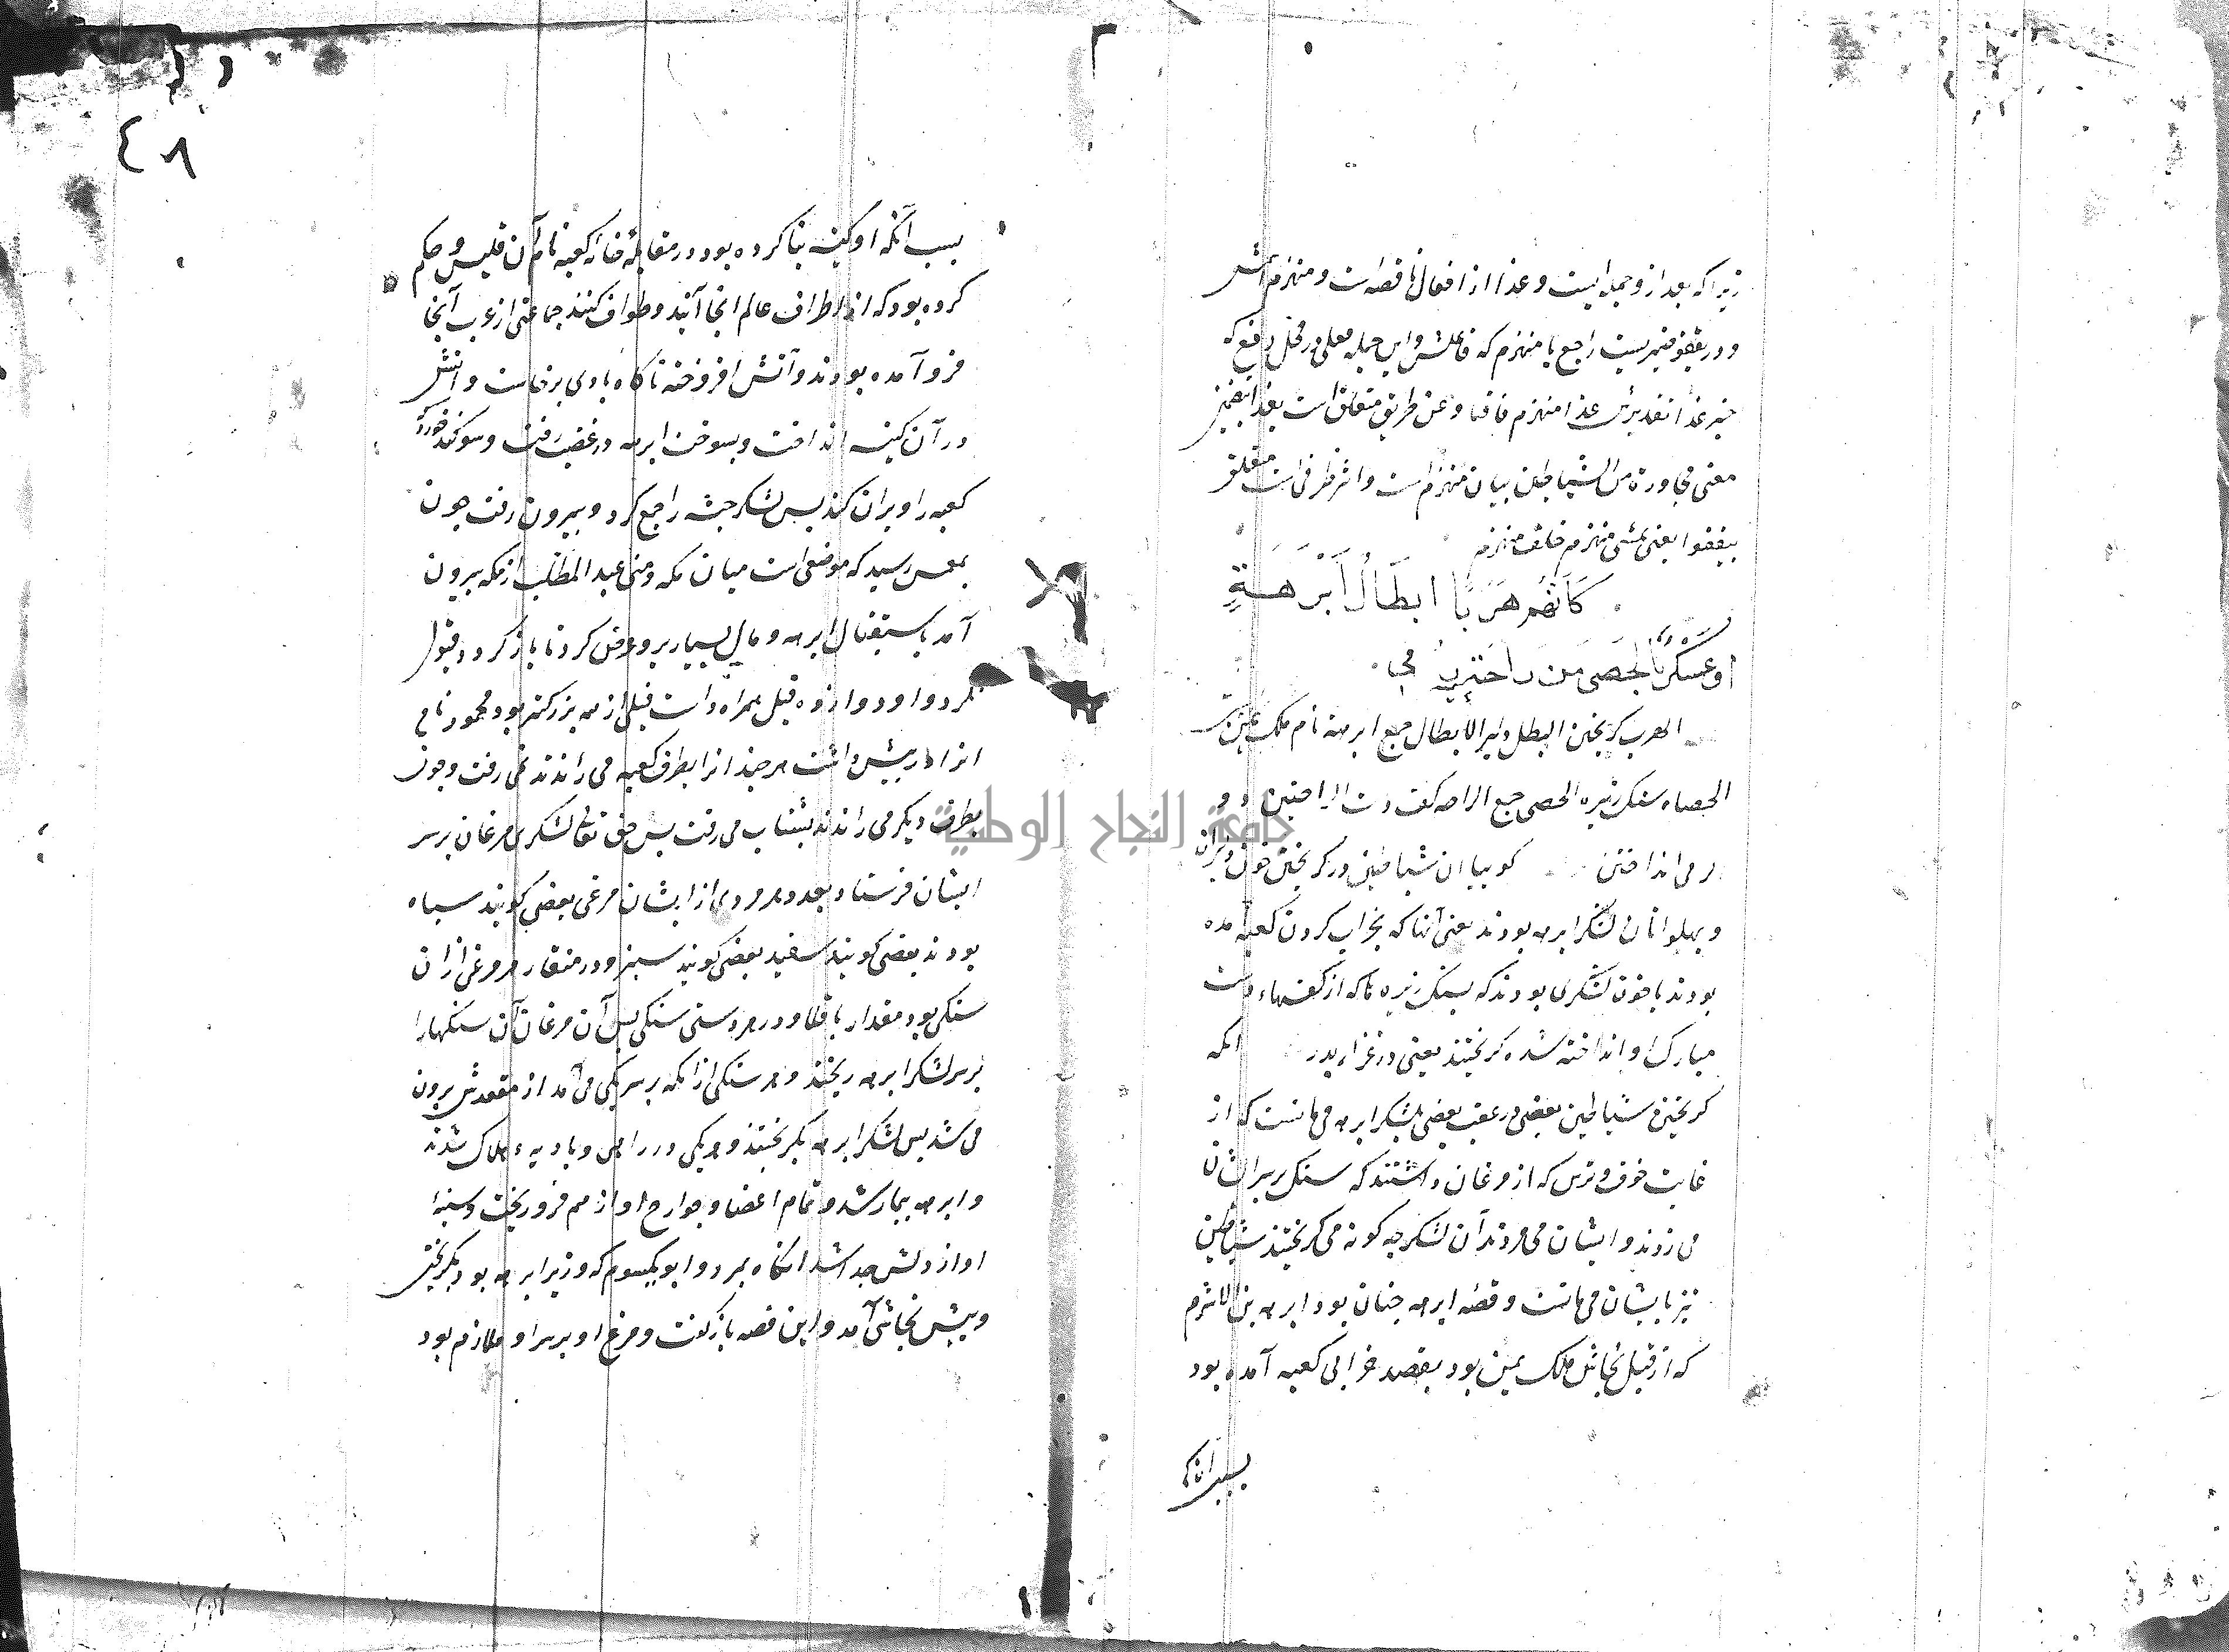 زیرا که بعد ازو جمله ایست و غدا از افعال ناقصه است و منهزم اسمش
و در یقفو ضمیریست راجع با منهزم که فاعلش و این جمله معلی در محل رفع که
خبر غدا تقدیرش غدا منهزم قافیا و عن طریق متعلق است بغدا بتضمین
معنی مجاورة من الشیاطین بیان منهزم است و اثر ظرف است متعلق
بیقفوا یعنی یمشی منهزم خلف منهزم
كَأَنَّهُمْ هَرَبًا ابطَالُ أَبْرَهَةٍ
أو عسكرٌ بالحَصَى مِنْ رَاحَتَيْهِ رُمِي
الهرب کریختن البطل دلیر الابطال جمع ابرهه نام ملک یمن
الحصاه سنک ریزه الحصی جمع الراحه کف دست الراحتین دو
الرمی انداختن کوییا ان شیاطین در کریختن چون دلیران
و پهلوانان لشکر ابرهه بودند یعنی آنها که بخراب کردن کعبه آمده
بودند یا چون لشکری بودند که بسنک ریزه ها که از کفهاء دست
مبارک او انداخته شده کریختند یعنی در غزاء بدر انکه
کریختن شیاطین بعضی در عقب بعضی بلشکر ابرهه می مانست که از
غایت خوف و ترس که از مرغان داشتند که سنک بر سر ایشان
می زدند و ایشان می مردند آن لشکر چه کونه می کریختند شیاطین
نیز بایشان می مانست و قصه ابرهه چنان بود ابرهه بن الاشرم
که از قبل نجاشی ملک یمن بود بقصد خرابی کعبه آمده بود
بسبب آنکه
٤٨
بسبب آنکه او کنیسه بنا کرده بود در مقابله خانه کعبه نام آن قلیس و حکم
کرده بود که از اطراف عالم انجا آیند و طواف کنند جماعتی از عرب آنجا
فرو آمده بودند و آتش افروخته ناکاه بادی برخاست و اتش
در آن کنیسه انداخت و بسوخت ابرهه در غضب رفت و سوکند خورد
کعبه را ویران کند پس لشکر حبشه را جمع کرد و بیرون رفت چون
بمغمس رسید که موضعی است میان مکه و منی عبد المطلب از مکه بیرون
آمد باستقبال ابرهه و مال بسیار برو عرض کرد تا باز کردد قبول
نکرد و او دوازده فیل همراه داشت فیلی از همه بزرکتر بود محمود نام
انرا در پیش داشت هر چند انرا بطرف کعبه می راندند نمی رفت و چون
بطرف دیکر می راندند بشتاب می رفت پس حق تعالی لشکری مرغان بر سر
ایشان فرستاد بعدد هر مردی از ایشان مرغی بعضی کویند سیاه
بودند بعضی کویند سفید بعضی کویند سبز و در منقار هر مرغی ازان
سنکی بود مقدار باقلا و در هر دستی سنکی پس آن مرغان آن سنکها را
بر سر لشکر ابرهه ریختند و هر سنکی از انکه بر سر یکی می آمد از مقعدش بیرون
می شد پس لشکر ابرهه بکریختند و هر یکی در راهی و بادیه هلاک شدند
و ابرهه بیمار شد و تمام اعضا و جوارح او از هم فرو ریخت و سینه
او از دلش جدا شد انکاه بمرد و ابو یکسوم که وزیر ابرهه بود بکریخت
و پیش نجاشی آمد و این قصه باز کفت و مرغ او بر سر او ملازم بود
جامعة النجاح الوطنية